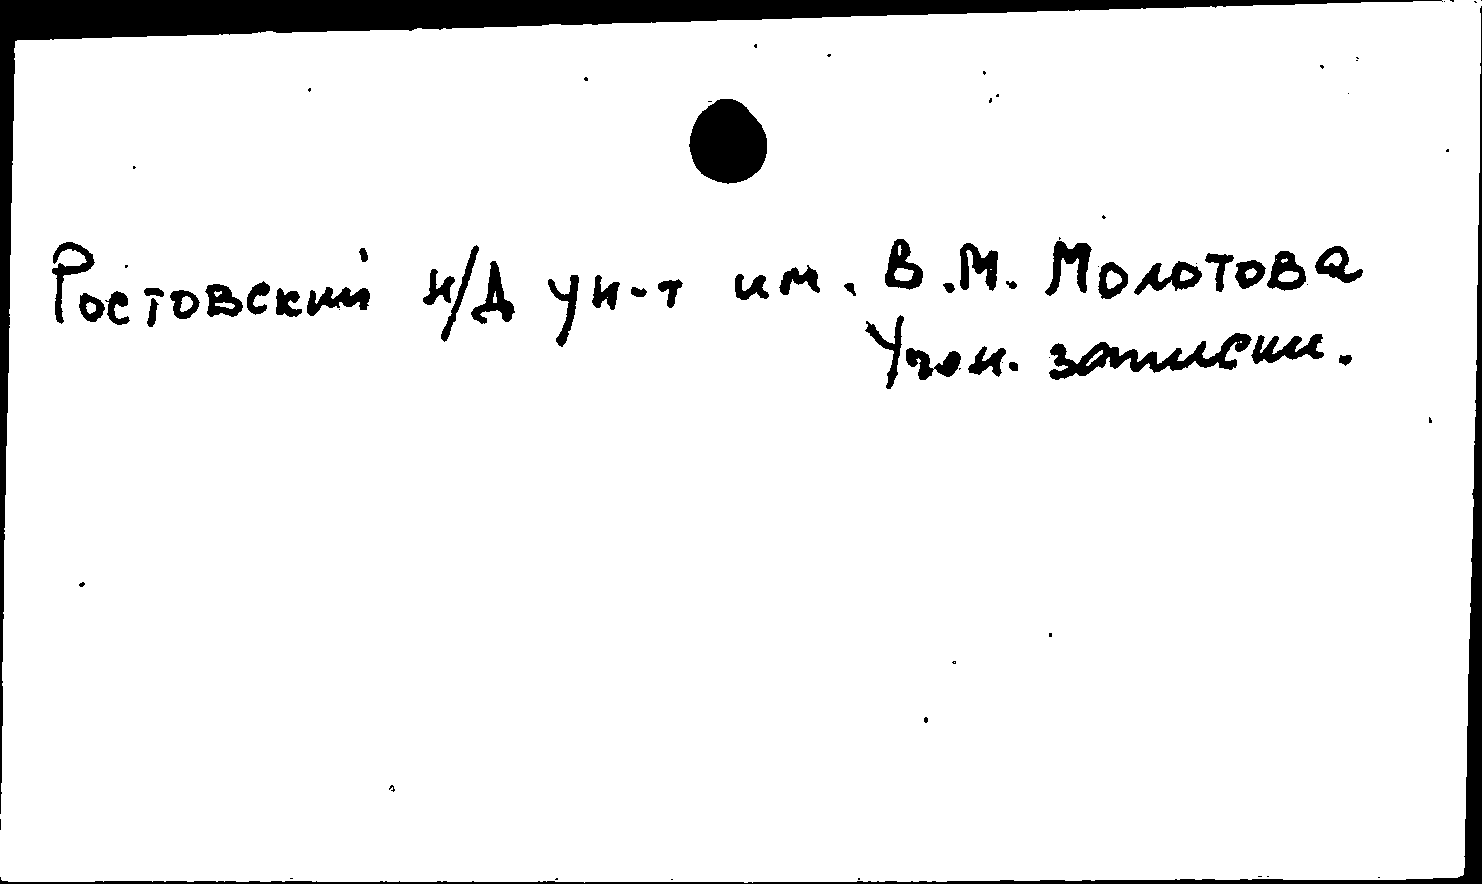 Ростовский н/Д ун-т им. В.М. Молотова
Учен. записки.